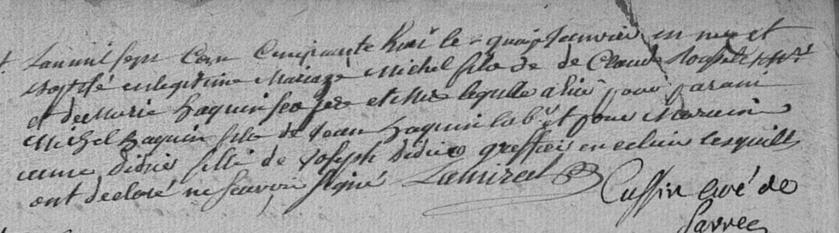 Lan mil sept Cent Cinquante huit le quinz Janvier en nee et
baptisé en legitime Mariage Michel fils de de Claude
et de Marie haquin ses pere et mere lequelle a hüe pour parain
Michel haquin fils de Jean haquin lab.r et pour Maraine
anne didier fille de Joseph didier greffier en lesquills
ont declaré ne sçavoir signé Lamirel
Cuffin curé de